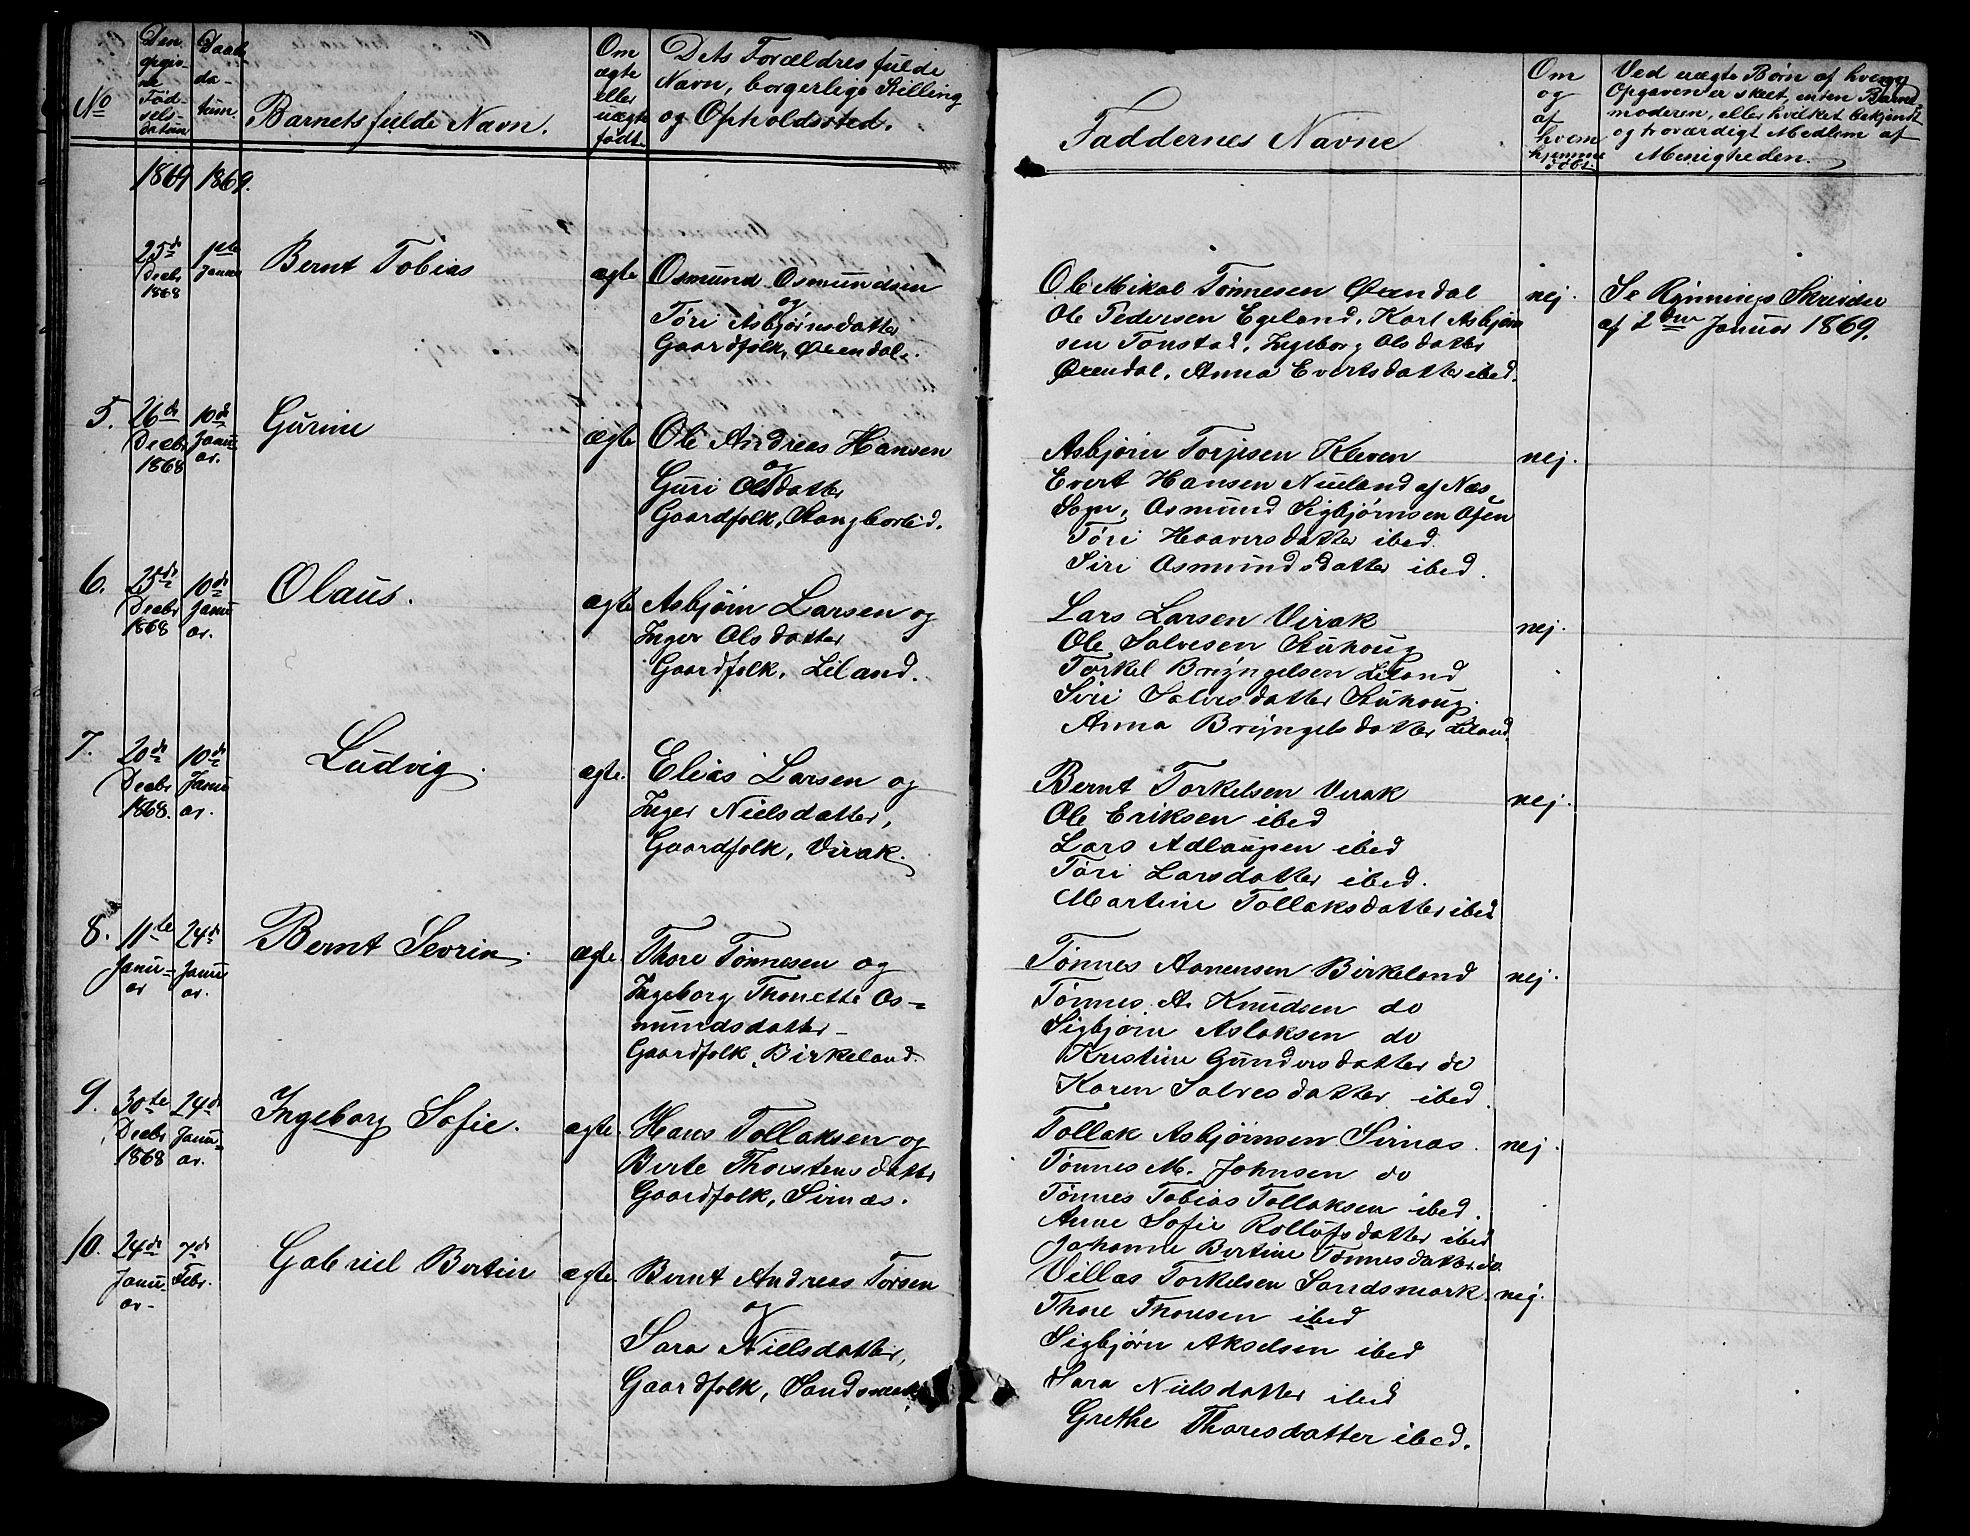 No
Den opgivne Fødselsdatum
Daabsdatum.
Barnets fulde Navn.
Om ægte eller uægte født.
Dets Forældres fulde
Navn, borgerlige Stilling
og Opholdssted.
Faddernes Navne
Om og af hvem hjemmedøbt.
Ved uægte Børn af hvem
Opgaven er skeet, enten Barne-
moderen, eller hvilket bekjendt
og troværdigt Medlem af
Menigheden.
1869 1869.
25de Decbr 1868
1ste Januar
Bernt Tobias
ægte
Osmund Osmundsen
og
Tóri Asbjørnsdatter
Gaardfolk, Øendal.
Ole Mikal Tønnesen Øendal
Ole Pedersen Egeland, Karl Asbjørn
sen Tonstad, Ingeborg Olsdatter
Øendal, Anna Evertsdatter ibed.
nej.
Se Skrivelse
af 2den Januar 1869.
5. 26de Decbr 1868
10de Janu ar.
Gurine
ægte
Ole Andreas Hansen
og
Guri Olsdatter
Gaardfolk, Stangborlid.
Asbjørn Torjesen Kleven
Evert Hansen Nuland af Næs
Sogn, Osmund Sigbjørnsen Osen
Tóri Haaversdatter ibed.
Siri Osmundsdatter ibed.
nej.
6. 25de Decbr 1868
10de Janu ar.
Olaus.
ægte
Asbjørn Larsen og
Inger Olsdatter
Gaardfolk, Liland.
Lars Larsen Virak
Ole Salvesen Stuhoug
Torkel Brÿngelsen Liland
Siri Salvesdatter Stuhoug.
Anna Brÿngelsdatter Liland.
nej.
7. 20de Decbr 1868.
10de Janu ar.
Ludvig.
ægte.
Elias Larsen og
Inger Nielsdatter,
Gaardfolk, Virak.
Bernt Torkelsen Virak
Ole Eriksen ibed
Lars Adlaugsen ibed
Tóri Larsdatter ibed.
Martine Tollaksdatter ibed
nej.
8. 11te Janu= ar
24de Janu ar.
Bernt Sevrin.
ægte.
Thore Tønnesen og
Ingeborg Thonette Os=
mundsdatter
Gaardfolk, Birkeland.
Tønnes Aanensen Birkeland
Tønnes A. Knudsen do
Sigbjørn Aslaksen do
Kristine Gundersdatter do
Karen Salvesdatter ibed.
nej.
9. 30te Decbr 1868
24de Janu= ar.
Ingeborg Sofie.
ægte.
Hans Tollaksen og
Berte Thorstensdatter
Gaardfolk, Sirnæs.
Tollak Asbjørnsen Sirnæs.
Tønnes M. Johnsen do
Tønnes Tobias Tollaksen ibed.
Anne Sofie Rollofsdatter ibed
Johanne Bertine Tønnesdatter do.
nej.
10. 24de Janu- ar-
7de Febr.
Gabriel Bertin
ægte.
Bernt Andreas Torsen
og
Sara Nielsdatter,
Gaardfolk, Sandsmark.
Villas Torkelsen Sandsmark.
Thore Thoresen ibed
Sigbjørn Akselsen ibed
Sara Nielsdatter ibed
Grethe Thoresdatter ibed.
nej.